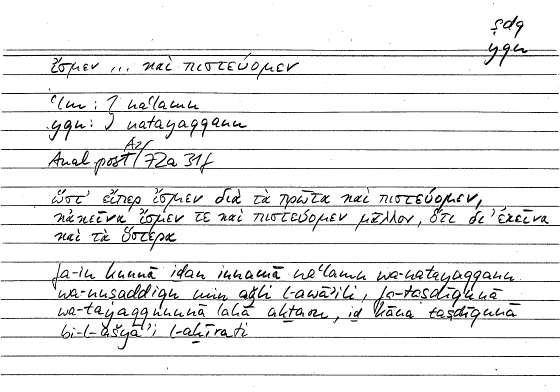 ṣdq
yqn
ἴσμεν ... καὶ πιστεύομεν
ʿlm : } naʿlamu
yqn : } natayaqqanu
Anal post I 2 72a 31f
ὥστ' εἴπερ ἴσμεν διὰ τὰ πρῶτα καὶ πιστεύομεν,
κἀκεῖνα ἴσμεν τε καὶ πιστεύομεν μᾶλλον, ὅτι δι' ἐκεῖνα
καὶ τὰ ὕστερα
fa-in kunnā iḏan innamā naʿlamu wa-natayaqqanu
wa-nuṣaddiqu min aǧli l-awāʾili, fa-taṣdīqunā
wa-tayaqqununā lahā akṯaru, iḏ kāna taṣdīqunā
bi-l-ašyāʾi l-aḫīrati